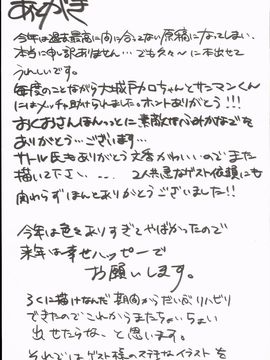 あとがき
今年は過去最高に間に合ってない原稿になってしまい
本当に申し訳ありません…でも久々〜に本出せて
うれしいです。
毎度のことながら大城戸カロちゃんとサンマンくん
にはメッチャ助けられました。ホントありがとう!!!
おくおさんほんっっとに素敵な
ありがとう…ございます…
サトル氏もありがとう文香かわいいのでまた
描いて下さい… 2人共急なゲスト依頼にも
関わらずほんとありがとうございました!!
今年は色々ありすぎてやばかったので
来年は幸せハッピーで
お願いします。
ろくに描けなんだ期間からだいぶリハビリ
できたのでこれからまたちょいちょい
出せたらな、と思います。
それではゲスト様のステキなイラストを